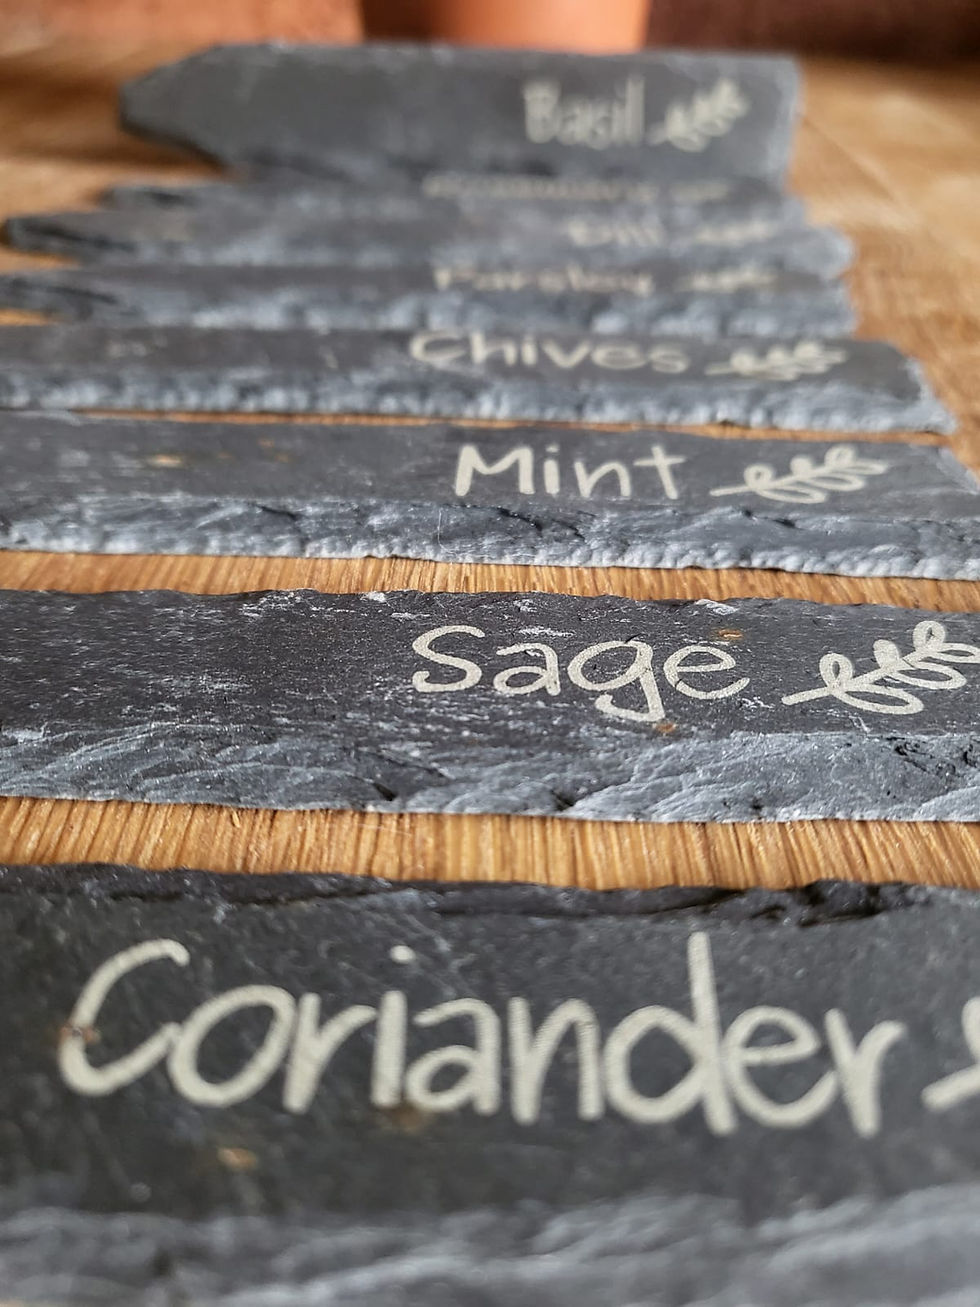 Basil
Dill
Parsley
Chives
Mint
Sage
Coriander